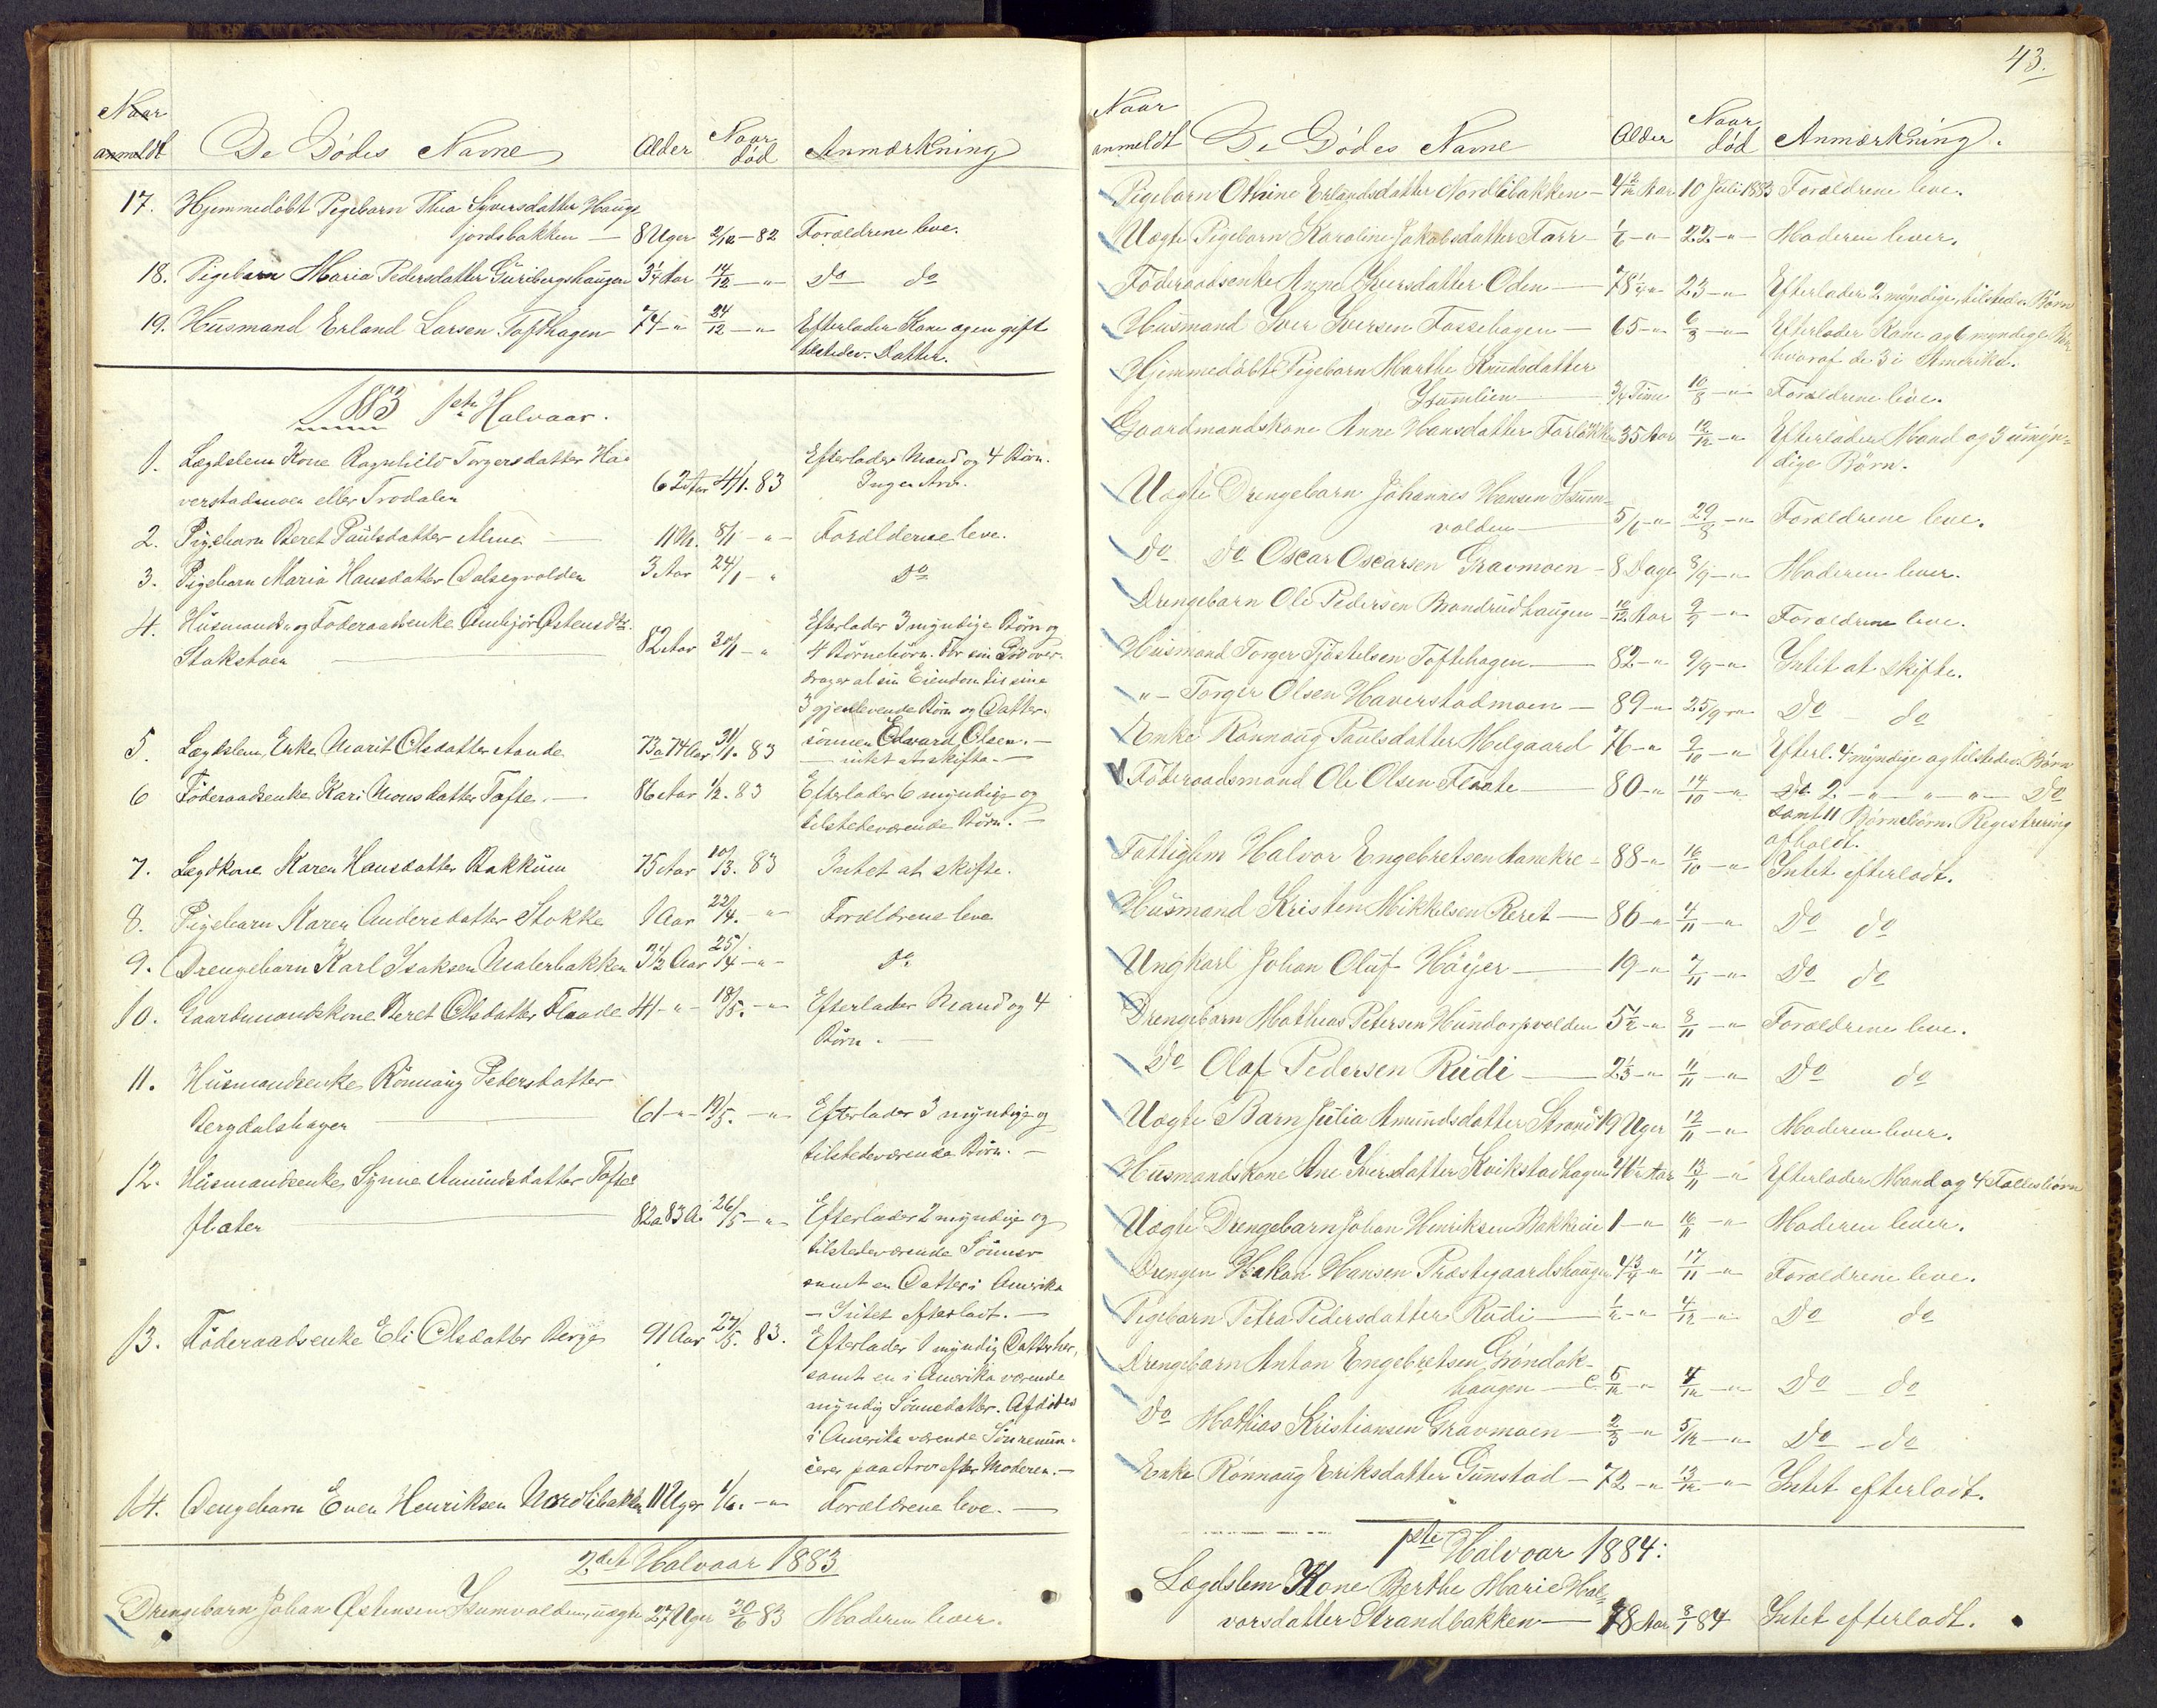 Naar
anmeldt De Dödes Navne Alder Naar död Anmærkning
17. Hjemmedöbt Pigebarn Thea Syversdatter Hauge
jordsbakken — 8 Uger 2/12 - 82 Forældrene leve.
18. Pigebarn Maria Pedersdatter Guribergshaugen 3 1/4 Aar 14/12 — " Do do
19. Husmand Erland Larsen Tofthagen 74 - " 24/12 — " Efterlader Kone og en gift
tilstedev. Datter.
1883 1ste Halvaar.
1. Lægdslem Kone Ragnhild Torgersdatter Ha= Efterlader Mand og 4 Börn.
verstadmoen eller Trodalen 62 Aar 4/1. 83 Ingen Arv.
2. Pigebarn Beret Paulsdatter — 11 M. 8/1 - " - Forælderne leve.
3. Pigebarn Maria Hansdatter Dalsegvolden 3 Aar 24/1 - " Do
4. Husmands- og Föderaadsenke Anbjör Östensdtr. Efterlader 3 myndige Börn og
Stakstoen — 82 Aar 30/1 - " 4 Börnebörn. För sin Död over-
drager al sin Eiendom til sine
3 gjenlevende Börn og Datter-
5. Lægdslem, Enke Marit Olsdatter Aande 73 a 74 Aar 31/1. 83 sönnen Edvard Olsen. —
— intet at skifte. —
6 Föderaadsenke Kari Monsdatter Tofte. — 86 Aar 1/2. 83 Efterlader 6 myndige og
tilstedeværende Börn. —
7. Lægdkone Karen Hansdatter Bakkum 75 Aar 10/3. 83 Intet at skifte.
8. Pigebarn Karen Andersdatter Stokke 1 Aar 22/4. - " Forældrene leve
9. Drengebarn Karl Isaksen Malerbakken 3 1/2 Aar 25/4 - " - Do
10. Gaardmandskone Beret Olsdatter Flaade 41 - " - 18/5. - " Efterlader Mand og 4
Börn. —
11. Husmandsenke Rönnaug Pedersdatter
Bergdalshagen — 61 - " - 19/5. - " Efterlader 3 myndige og
tilstedeværende Börn. —
12. Husmandsenke Synne Amundsdatter Tofte=
flaten — 82 a 83 A. 26/5 - " Efterlader 2 myndige og
tilstedeværende Sönner
samt en Datter i Amerika
— Intet efterladt. —
13. Föderaadsenke Eli Olsdatter Berge 91 Aar 27/5. 83. Efterlader 1 myndig Datter her,
samt en i Amerika værende
myndig Sönnedatter. Afdödes
i Amerika værende Sön renun-
cerer paa Arv efter Moderen. —
14. Dengebarn Even Henriksen Nordlibakken 11 Uger 1/6. - " Forældrene leve. —
2det Halvaar 1883
Drengebarn Johan Östensen Isumvolden, uægte 27 Uger 30/6 83 Moderen lever.
43.
Naar
anmeldt De Dödes Navne Alder Naar död Anmærkning.
Pigebarn Othine Erlandsdatter Nordlibakken - 4 2/12 Aar 10 Juli 1883 Forældrene leve.
Uægte Pigebarn Karoline Jakobsdatter Farr - 1/6 - " 22 - " - Moderen lever.
Föderaadsenke Anne Iversdatter Oden — 78 1/4 " 23 - " Efterlader 2 myndige, tilstedev. Börn
Husmand Iver Iversen Fossehagen — 65 - " 6/8 - " Efterlader Kone og 6 myndige Bn
hvoraf de 3 i Amerika.
Hjemmedöbt Pigebarn Marthe Knudsdatter
Isumlien — 3/4 Time 10/8 - " Forældrene leve.
Gaardmandskone Anne Hansdatter Forlökken 35 Aar 12/12 - " Efterlader Mand og 3 umyn=
dige Börn.
Uægte Drengebarn Johannes Hansen Isum=
volden — 5/6 - " 29/8 - " Forældrene leve.
Do Do Oscar Oscarsen Gravmoen - 8 Dage 8/9 - " Moderen lever.
Drengebarn Ole Pedersen Brandrudhaugen - 10/12 Aar 9/9 - " Forældrene leve.
Husmand Torger Tjöstelsen Toftehagen — 82 - " 9/9 - " Intet at skifte.
" - Torger Olsen Haverstadmoen — 89 - " 25/9 - " Do - do
Enke Rönnaug Paulsdatter Melgaard 76 - " 9/10 - " Efterl. 4 myndige og tilstedev. Börn
Föderaadsmand Ole Olsen Flaate — 80 - " 14/10 - " do. 2 - " - " - " - Do
samt 11 Börnebörn. Registrering
afholdt.
Fattiglem Halvor Engebretsen Aanekre - 88 - " 16/10 - " Intet efterladt.
Husmand Kristen Mikkelsen Reret — 86 - " 4/11 - " Do do
Ungkarl Johan Oluf Höyer — 19 - " 7/11 - " Do do
Drengebarn Mathias Petersen Hundorpvolden 5 1/2 - " 8/11 - " Forældrene leve.
Do Olaf Pedersen Rudi — 2 1/3 - " 11/11 - " Do do
Uægte Barn Julia Amundsdatter Strand 19 Uger 12/11 - " Moderen lever.
Husmandskone Ane Iversdatter Kvikstadhagen 41 1/2 Aar 13/11 - " Efterlader Mand og 4 Fællesbörn
Uægte Drengebarn Johan Henriksen Bakken 1 - " 16/11 - " Moderen lever.
Drengen Haakon Hansen Præstegaardshaugen 4 3/4 - " 17/11 - " Forældrene leve.
Pigebarn Petra Pedersdatter Rudi — 1/2 - " 4/12 - " Do do
Drengebarn Anton Engebretsen Gröndak-
haugen — c. 5/12 - " 4/12 - " Do - do
Do Mathias Kristiansen Gravmoen — 2/3 - " 5/12 - " Do - do
Enke Rönnaug Eriksdatter Gunstad - 72 - " 13/12 - " Intet efterladt.
1ste Halvaar 1884:
Lægdslem Kone Berthe Marie Hal=
vorsdatter Strandbakken — 78 Aar 3/1 84 Intet efterladt.